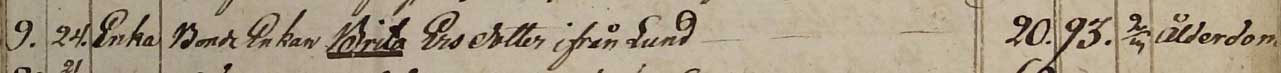 9. 24. Enka Bonde Enkan Brita Ersdotter ifrån Lund — — — 20. 93. 2/m Ålderdom